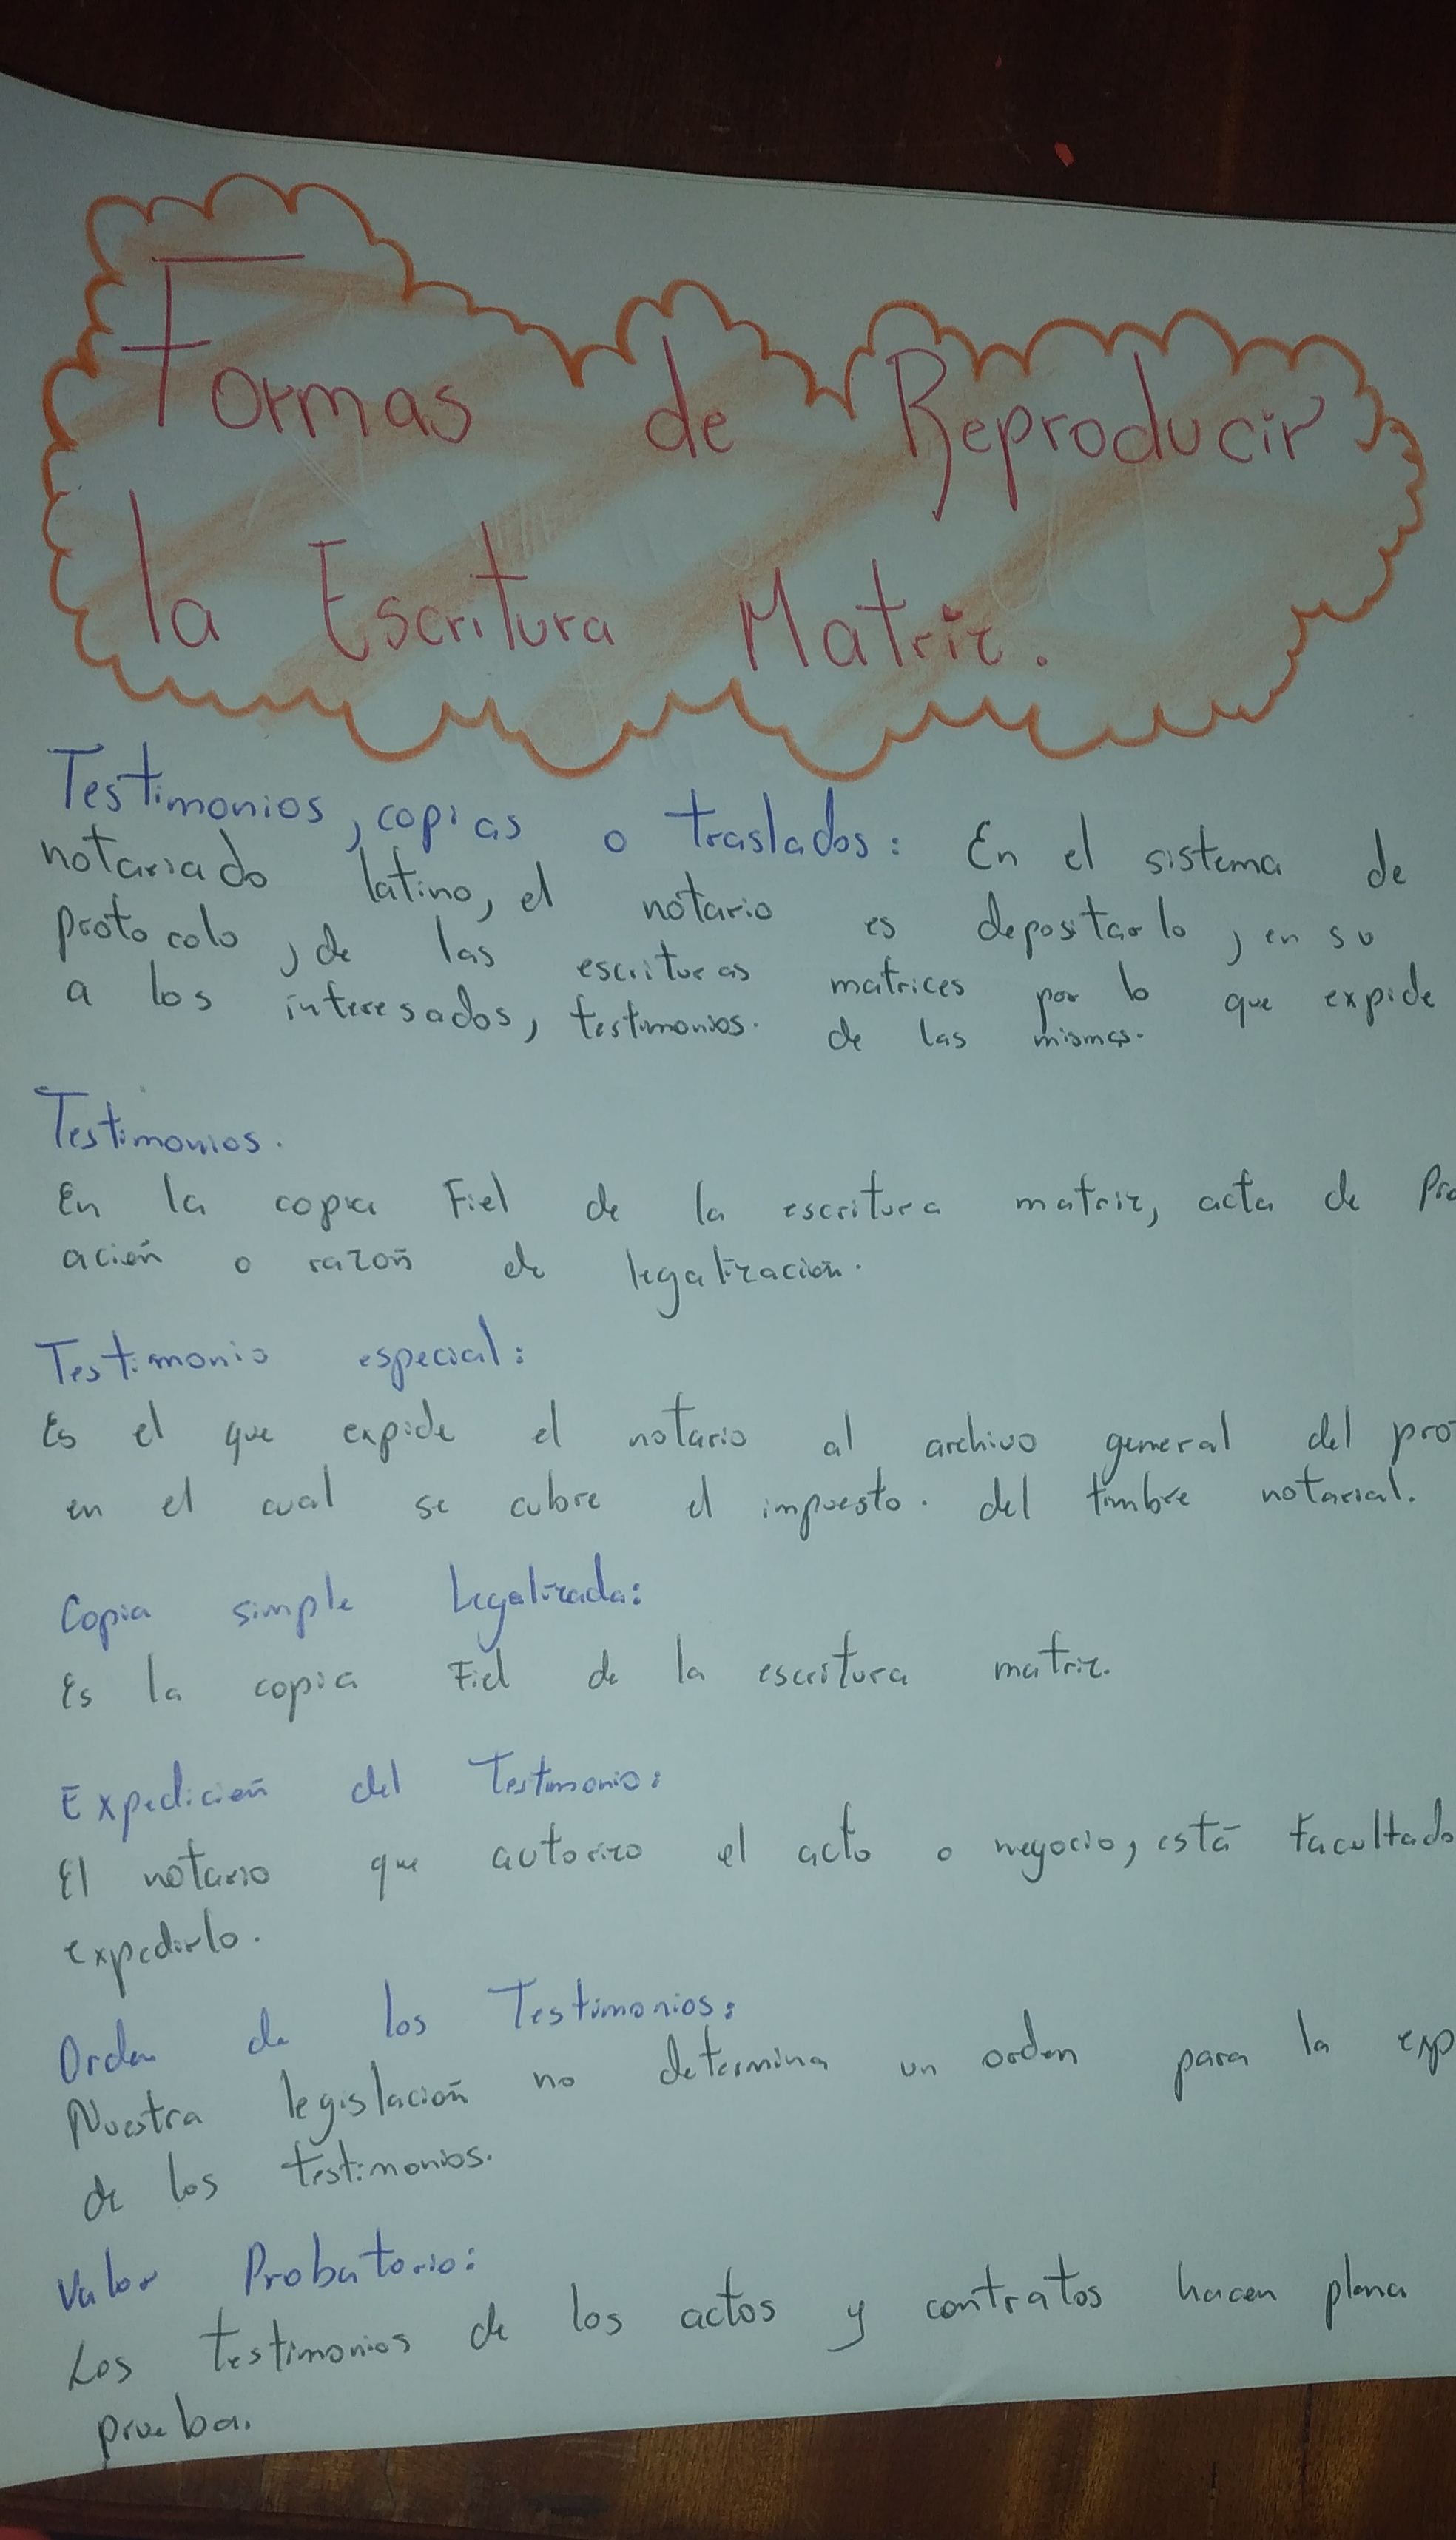 Formas de Reproducir
la Escritura Matriz.
Testimonios, copias o traslados: En el sistema de
notariado latino, el notario es depositario, en su
protocolo, de las escrituras matrices por lo que expide
a los interesados, testimonios. de las mismas.
Testimonios.
En la copia Fiel de la escritura matriz, acta de Pro
ación o razón de legalización.
Testimonio especial:
Es el que expide el notario al archivo general del pro
en el cual se cubre el impuesto. del timbre notarial.
Copia simple Legalizada:
Es la copia Fiel de la escritura matriz.
Expedición del Testimonio:
El notario que autorizo el acto o negocio, está facultado
expedirlo.
Orden de los Testimonios:
Nuestra legislación no determina un orden para la exp
de los testimonios.
Valor Probatorio:
Los testimonios de los actos y contratos hacen plena
prueba.